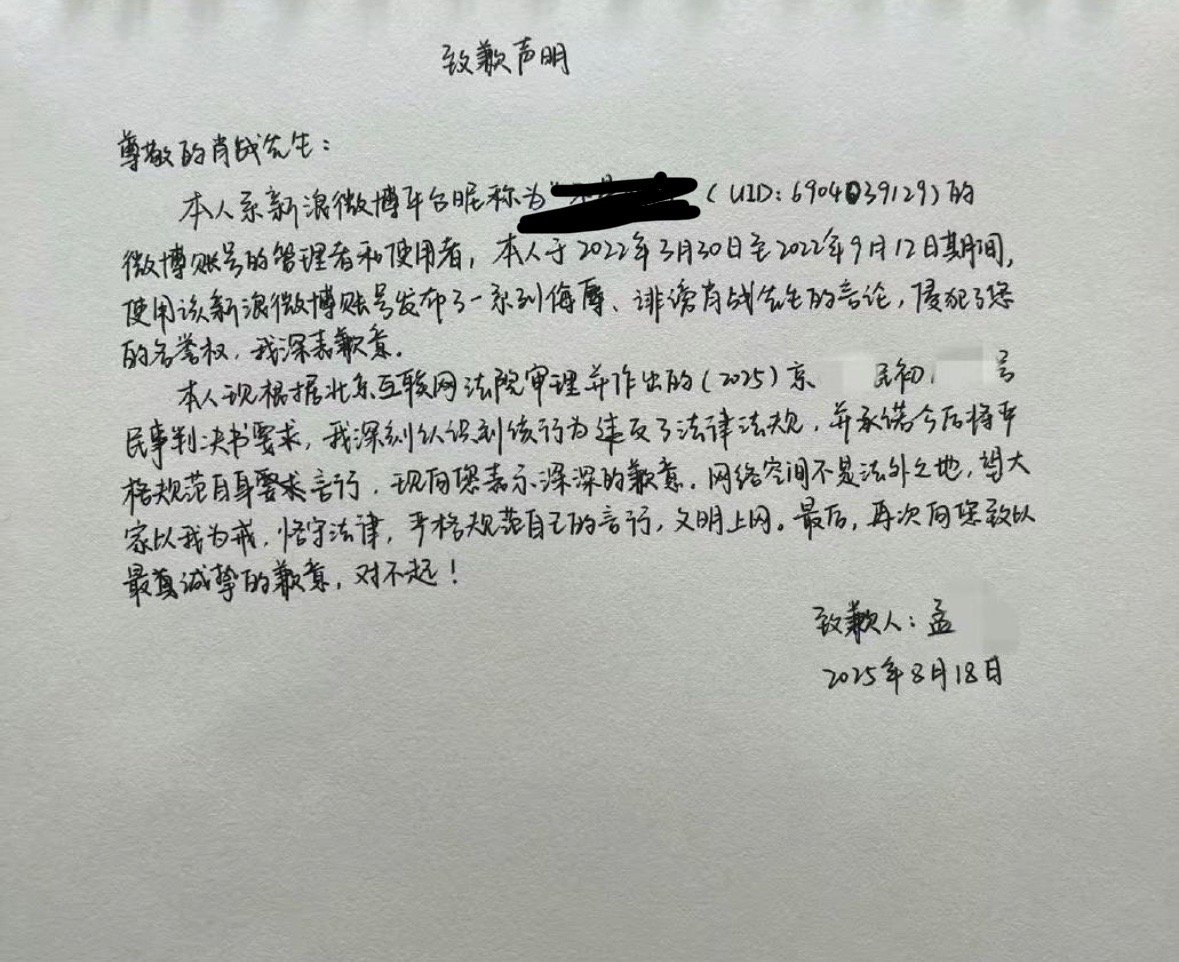 致歉声明
尊敬的肖战先生：
本人系新浪微博平台昵称为“ （UID：6904039129）的
微博账号的管理者和使用者，本人于2022年3月30日至2022年9月12日期间，
使用该新浪微博账号发布了一系列侮辱、诽谤肖战先生的言论，侵犯了您
的名誉权，我深表歉意。
本人现根据北京互联网法院审理并作出的（2025）京 民初 号
民事判决书要求，我深刻认识到该行为违反了法律法规，并承诺今后将严
格规范自身要求言行，现向您表示深深的歉意。网络空间不是法外之地，望大
家以我为戒，恪守法律，严格规范自己的言行，文明上网。最后，再次向您致以
最真诚挚的歉意，对不起！
致歉人：孟
2025年8月18日